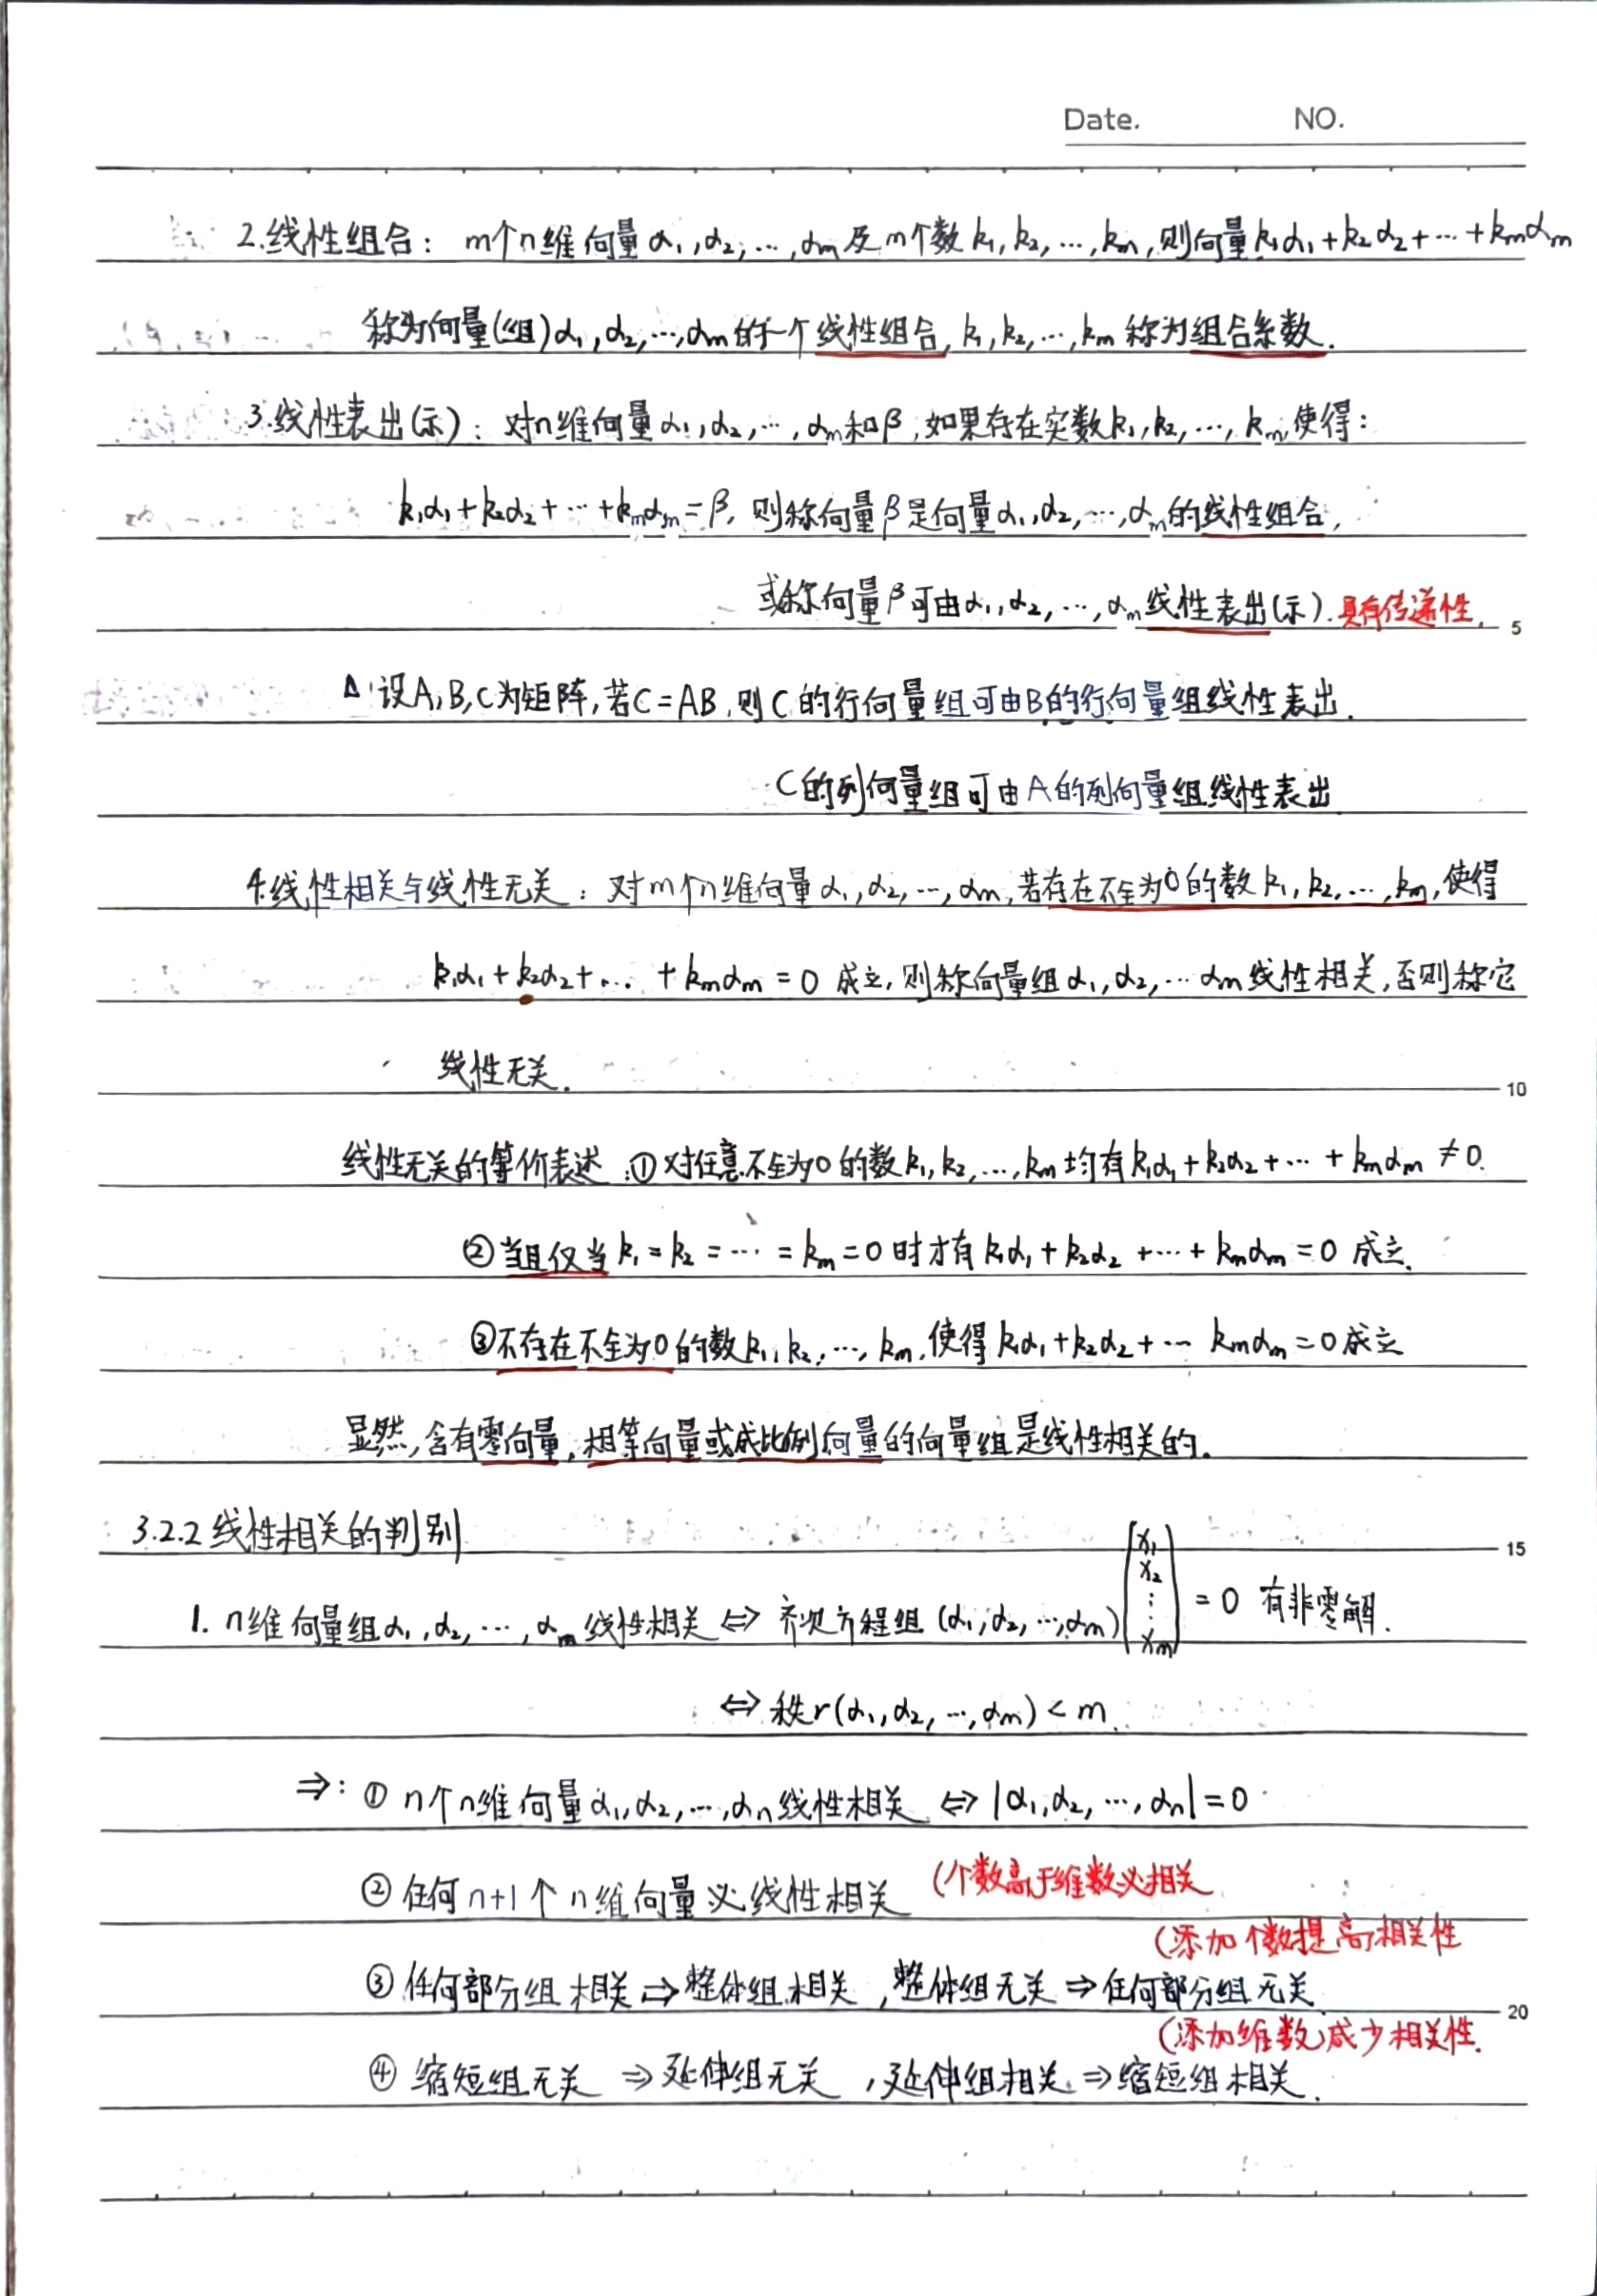 Date. NO.
2.线性组合: m个n维向量α₁,α₂,…,αm及m个数k₁,k₂,…,km,则向量k₁α₁+k₂α₂+…+kmαm
称为向量(组)α₁,α₂,…,αm的一个线性组合,k₁,k₂,…,km称为组合系数.
3.线性表出(示): 对n维向量α₁,α₂,…,αm和β,如果存在实数k₁,k₂,…,km,使得:
k₁α₁+k₂α₂+…+kmαm=β,则称向量β是向量α₁,α₂,…,αm的线性组合,
或称向量β可由α₁,α₂,…,αm线性表出(示).具有传递性. 5
Δ 设A,B,C为矩阵,若C=AB,则C的行向量组可由B的行向量组线性表出.
C的列向量组可由A的列向量组线性表出
4.线性相关与线性无关: 对m个n维向量α₁,α₂,…,αm,若存在不全为0的数k₁,k₂,…,km,使得
k₁α₁+k₂α₂+…+kmαm=0 成立,则称向量组α₁,α₂,…αm线性相关,否则称它
线性无关. 10
线性无关的等价表述:①对任意不全为0的数k₁,k₂,…,km均有k₁α₁+k₂α₂+…+kmαm≠0.
②当且仅当k₁=k₂=…=km=0时才有k₁α₁+k₂α₂+…+kmαm=0 成立.
③不存在不全为0的数k₁,k₂,…,km,使得k₁α₁+k₂α₂+… kmαm=0成立
显然,含有零向量,相等向量或成比例向量的向量组是线性相关的.
3.2.2 线性相关的判别 15
1. n维向量组α₁,α₂,…,αm线性相关⇔齐次方程组(α₁,α₂,…,αm)[x₁ x₂ ⋮ xm]=0 有非零解.
⇔秩r(α₁,α₂,…,αm)<m.
⇒: ① n个n维向量α₁,α₂,…,αn线性相关 ⇔ |α₁,α₂,…,αn|=0
② 任何n+1个n维向量必线性相关 (个数高于维数必相关
(添加个数提高相关性
③ 任何部分组相关⇒整体组相关,整体组无关⇒任何部分组无关. 20
(添加维数)减少相关性.
④ 缩短组无关 ⇒延伸组无关 ,延伸组相关⇒缩短组相关.